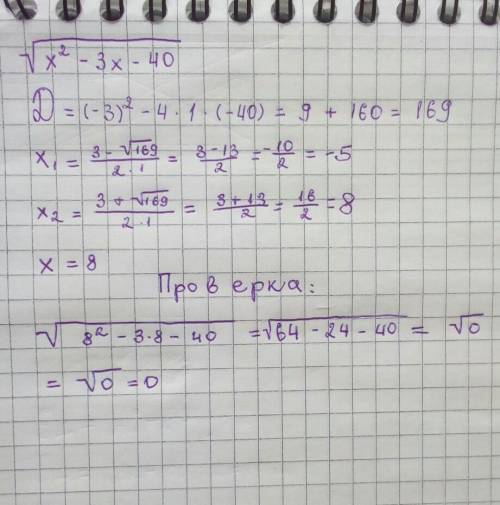 √(x² - 3x - 40)
D = (-3)² - 4 · 1 · (-40) = 9 + 160 = 169
x₁ = (3 - √169)/(2 · 1) = (3 - 13)/2 = -10/2 = -5
x₂ = (3 + √169)/(2 · 1) = (3 + 13)/2 = 16/2 = 8
x = 8
Проверка:
√(8² - 3·8 - 40) = √(64 - 24 - 40) = √0
= √0 = 0